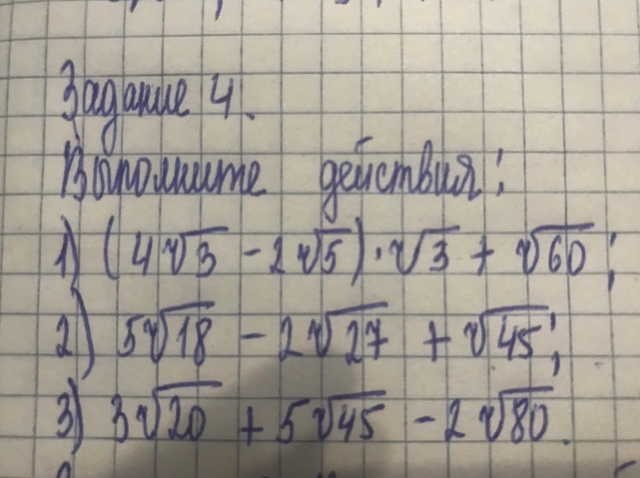 Задание 4.
Выполните действия:
1) (4√3 - 2√5) · √3 + √60;
2) 5√18 - 2√27 + √45;
3) 3√20 + 5√45 - 2√80.